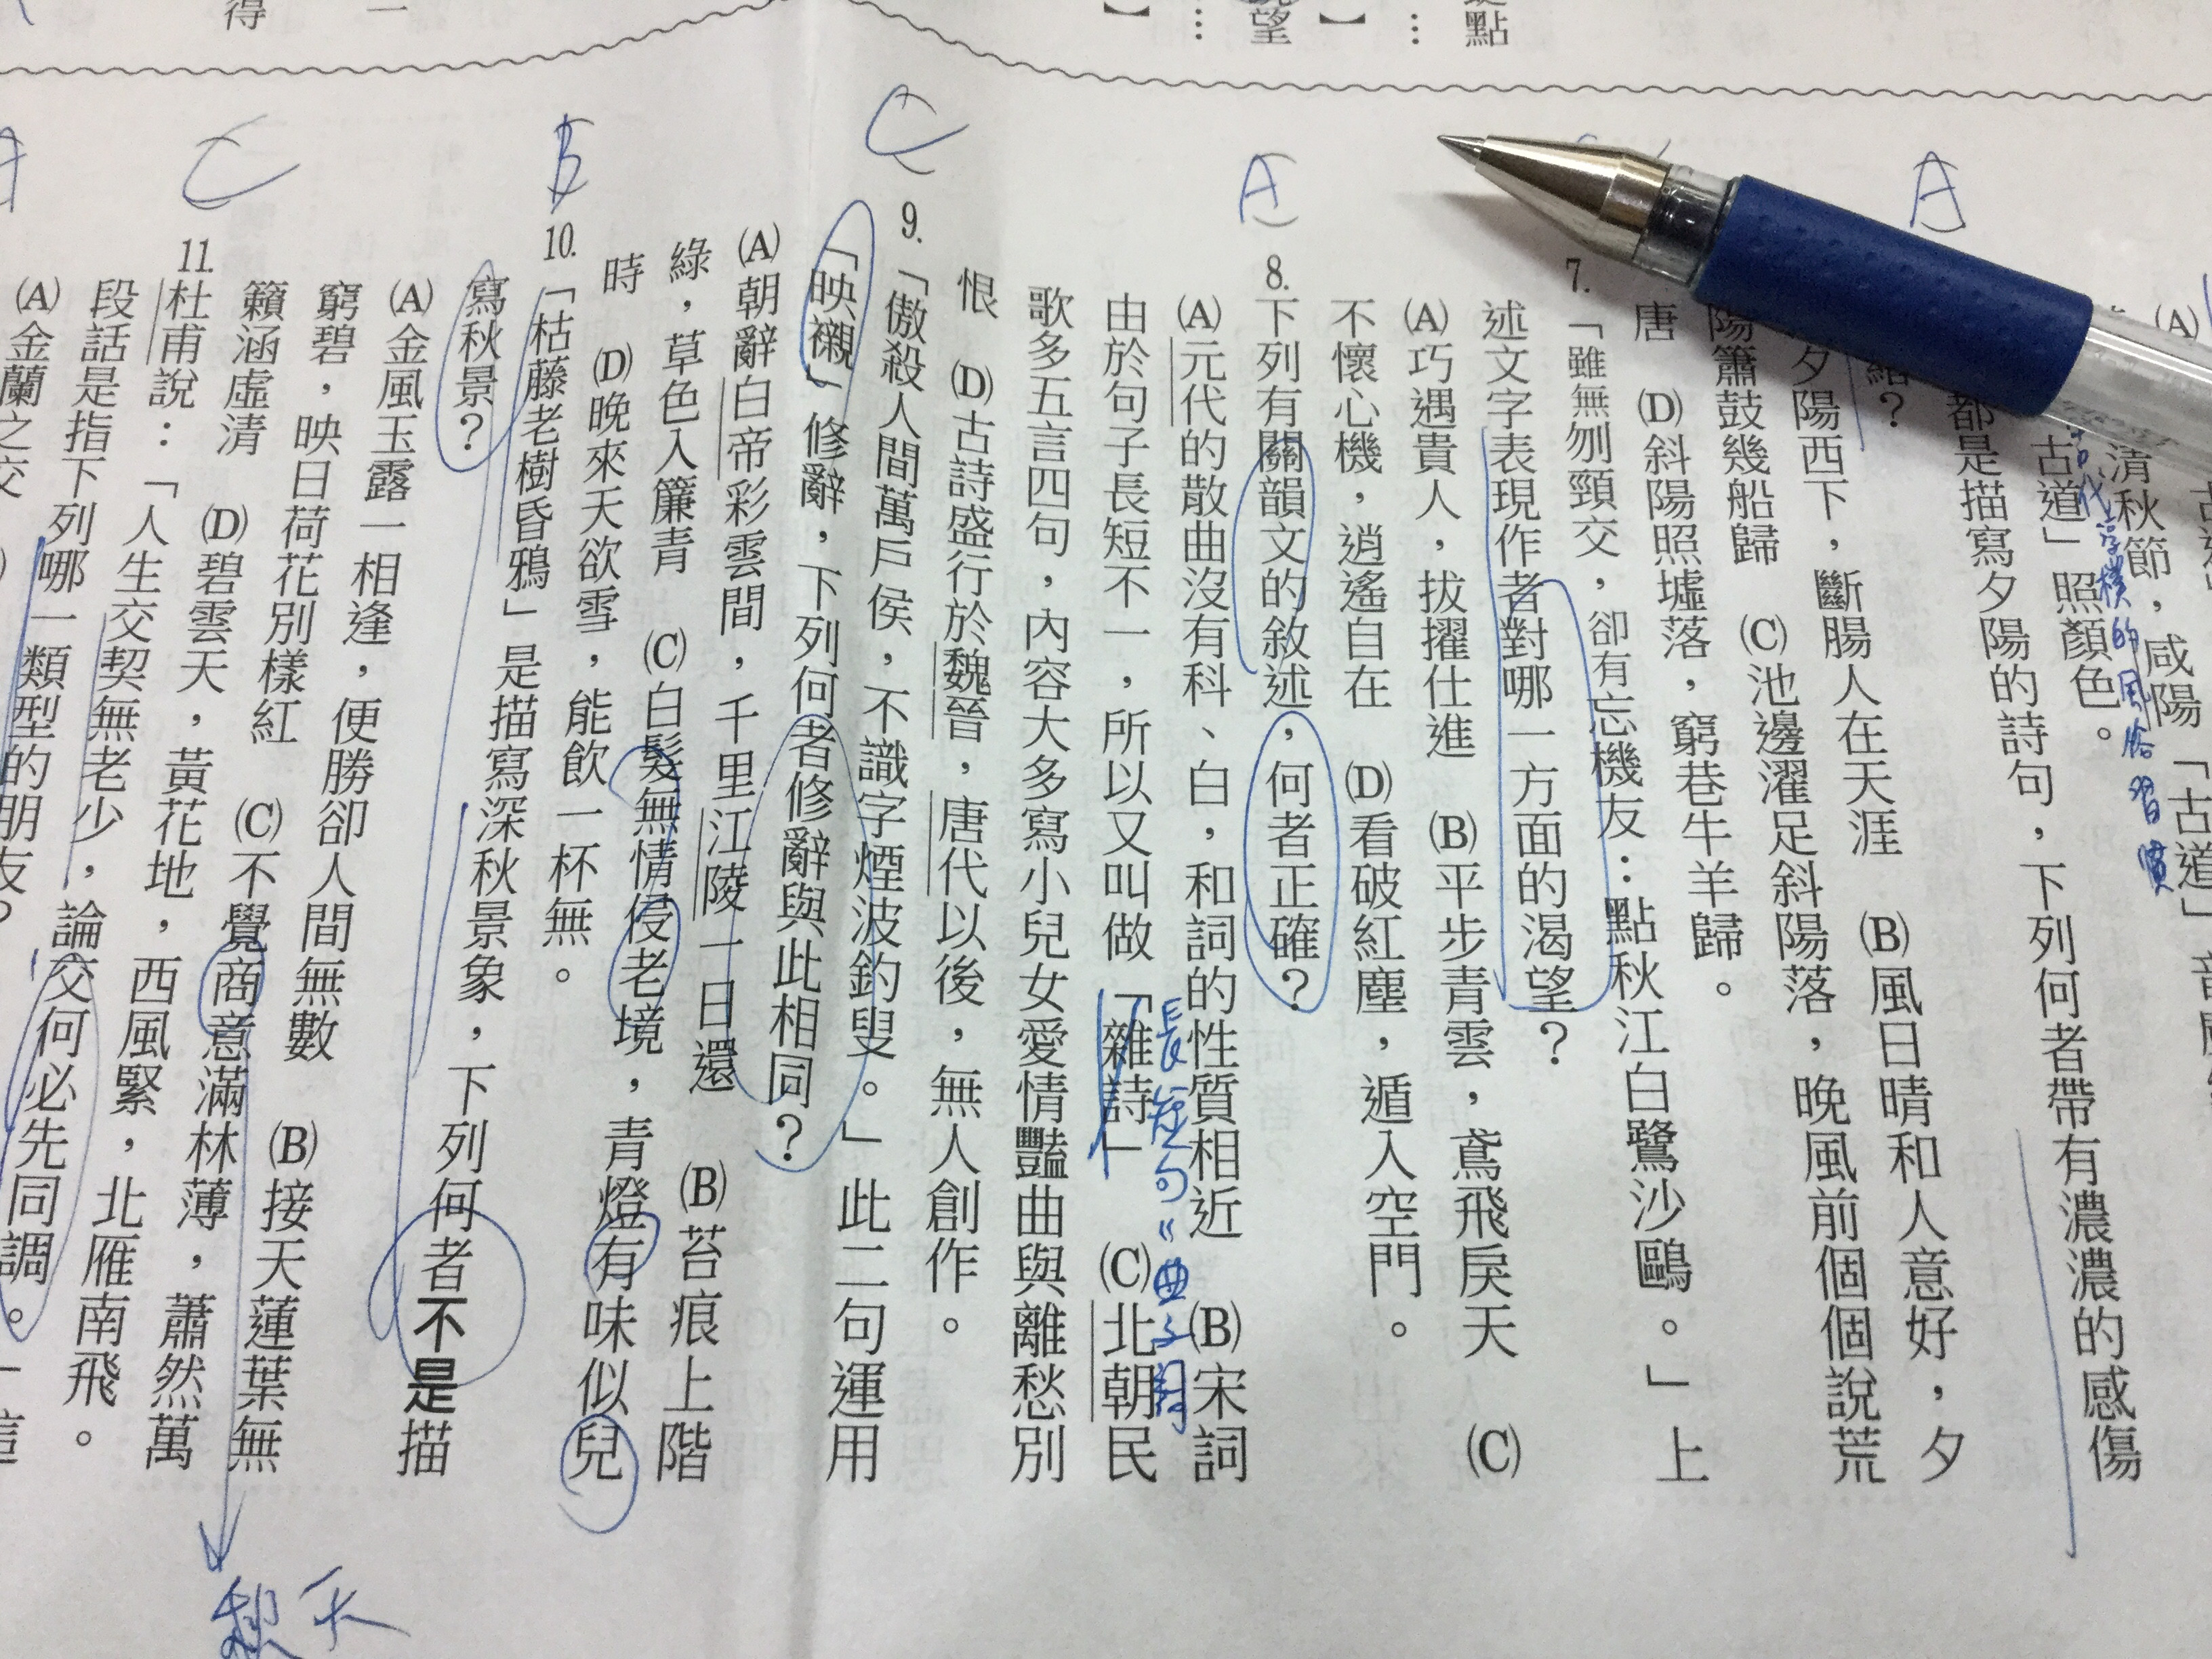 點
…
】
望
…
】
一
得
(A)
清秋節，咸陽「古道」音
古道」照顏色。
古代淳樸的風俗習慣
都是描寫夕陽的詩句，下列何者帶有濃濃的感傷
緒？
夕陽西下，斷腸人在天涯 (B)風日晴和人意好，夕
陽簫鼓幾船歸 (C)池邊濯足斜陽落，晚風前個個說荒
唐 (D)斜陽照墟落，窮巷牛羊歸。
A
7.「雖無刎頸交，卻有忘機友：點秋江白鷺沙鷗。」上
述文字表現作者對哪一方面的渴望？
(A)巧遇貴人，拔擢仕進 (B)平步青雲，鳶飛戾天 (C)
不懷心機，逍遙自在 (D)看破紅塵，遁入空門。
A
8.下列有關韻文的敘述，何者正確？
(A)元代的散曲沒有科、白，和詞的性質相近 (B)宋詞
由於句子長短不一，所以又叫做「雜詩」 (C)北朝民
長短句
歌多五言四句，內容大多寫小兒女愛情豔曲與離愁別
恨 (D)古詩盛行於魏晉，唐代以後，無人創作。
C
9.「傲殺人間萬戶侯，不識字煙波釣叟。」此二句運用
「映襯」修辭，下列何者修辭與此相同？
(A)朝辭白帝彩雲間，千里江陵一日還 (B)苔痕上階
綠，草色入簾青 (C)白髮無情侵老境，青燈有味似兒
時 (D)晚來天欲雪，能飲一杯無。
B
10.「枯藤老樹昏鴉」是描寫深秋景象，下列何者不是描
寫秋景？
(A)金風玉露一相逢，便勝卻人間無數 (B)接天蓮葉無
窮碧，映日荷花別樣紅 (C)不覺商意滿林薄，蕭然萬
籟涵虛清 (D)碧雲天，黃花地，西風緊，北雁南飛。
秋天
C
11.杜甫說：「人生交契無老少，論交何必先同調。」這
段話是指下列哪一類型的朋友？
(A)金蘭之交